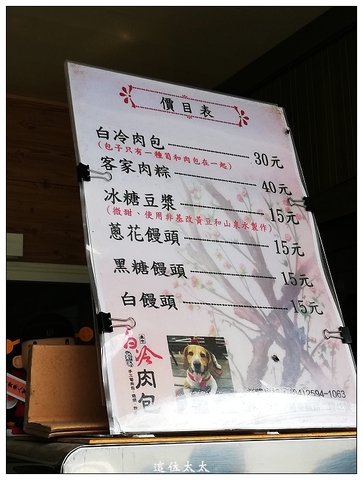 價目表
白冷肉包 30元
(包子只有一種筍和肉包在一起)
客家肉粽 40元
冰糖豆漿 15元
(微甜、使用非基改黃豆和山泉水製作)
蔥花饅頭 15元
黑糖饅頭 15元
白饅頭 15元
白冷肉包
(04)2594-1063
這佐太太